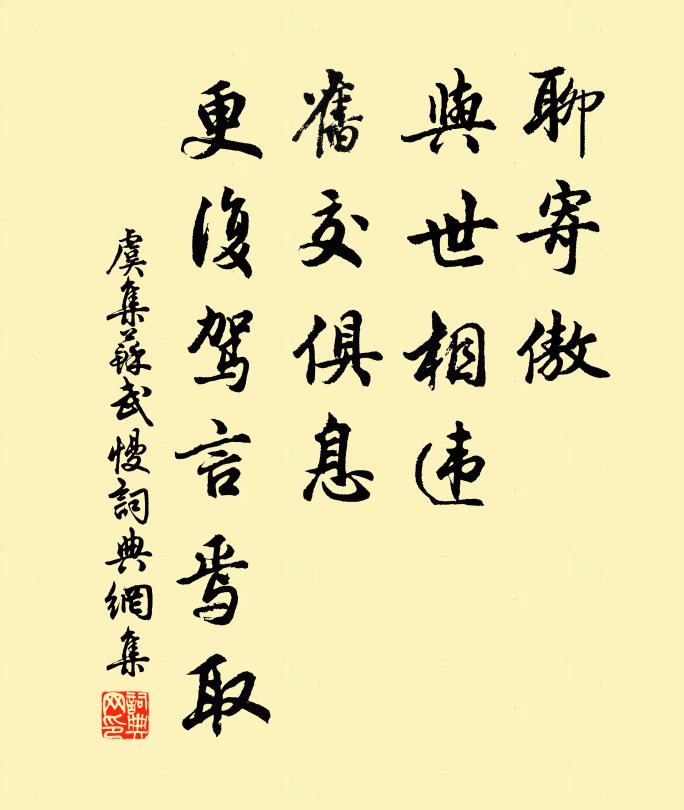 聊寄傲
與世相违
舊交俱息
更復驾言焉取
虞集蘇武慢詞典網集
詞典网印